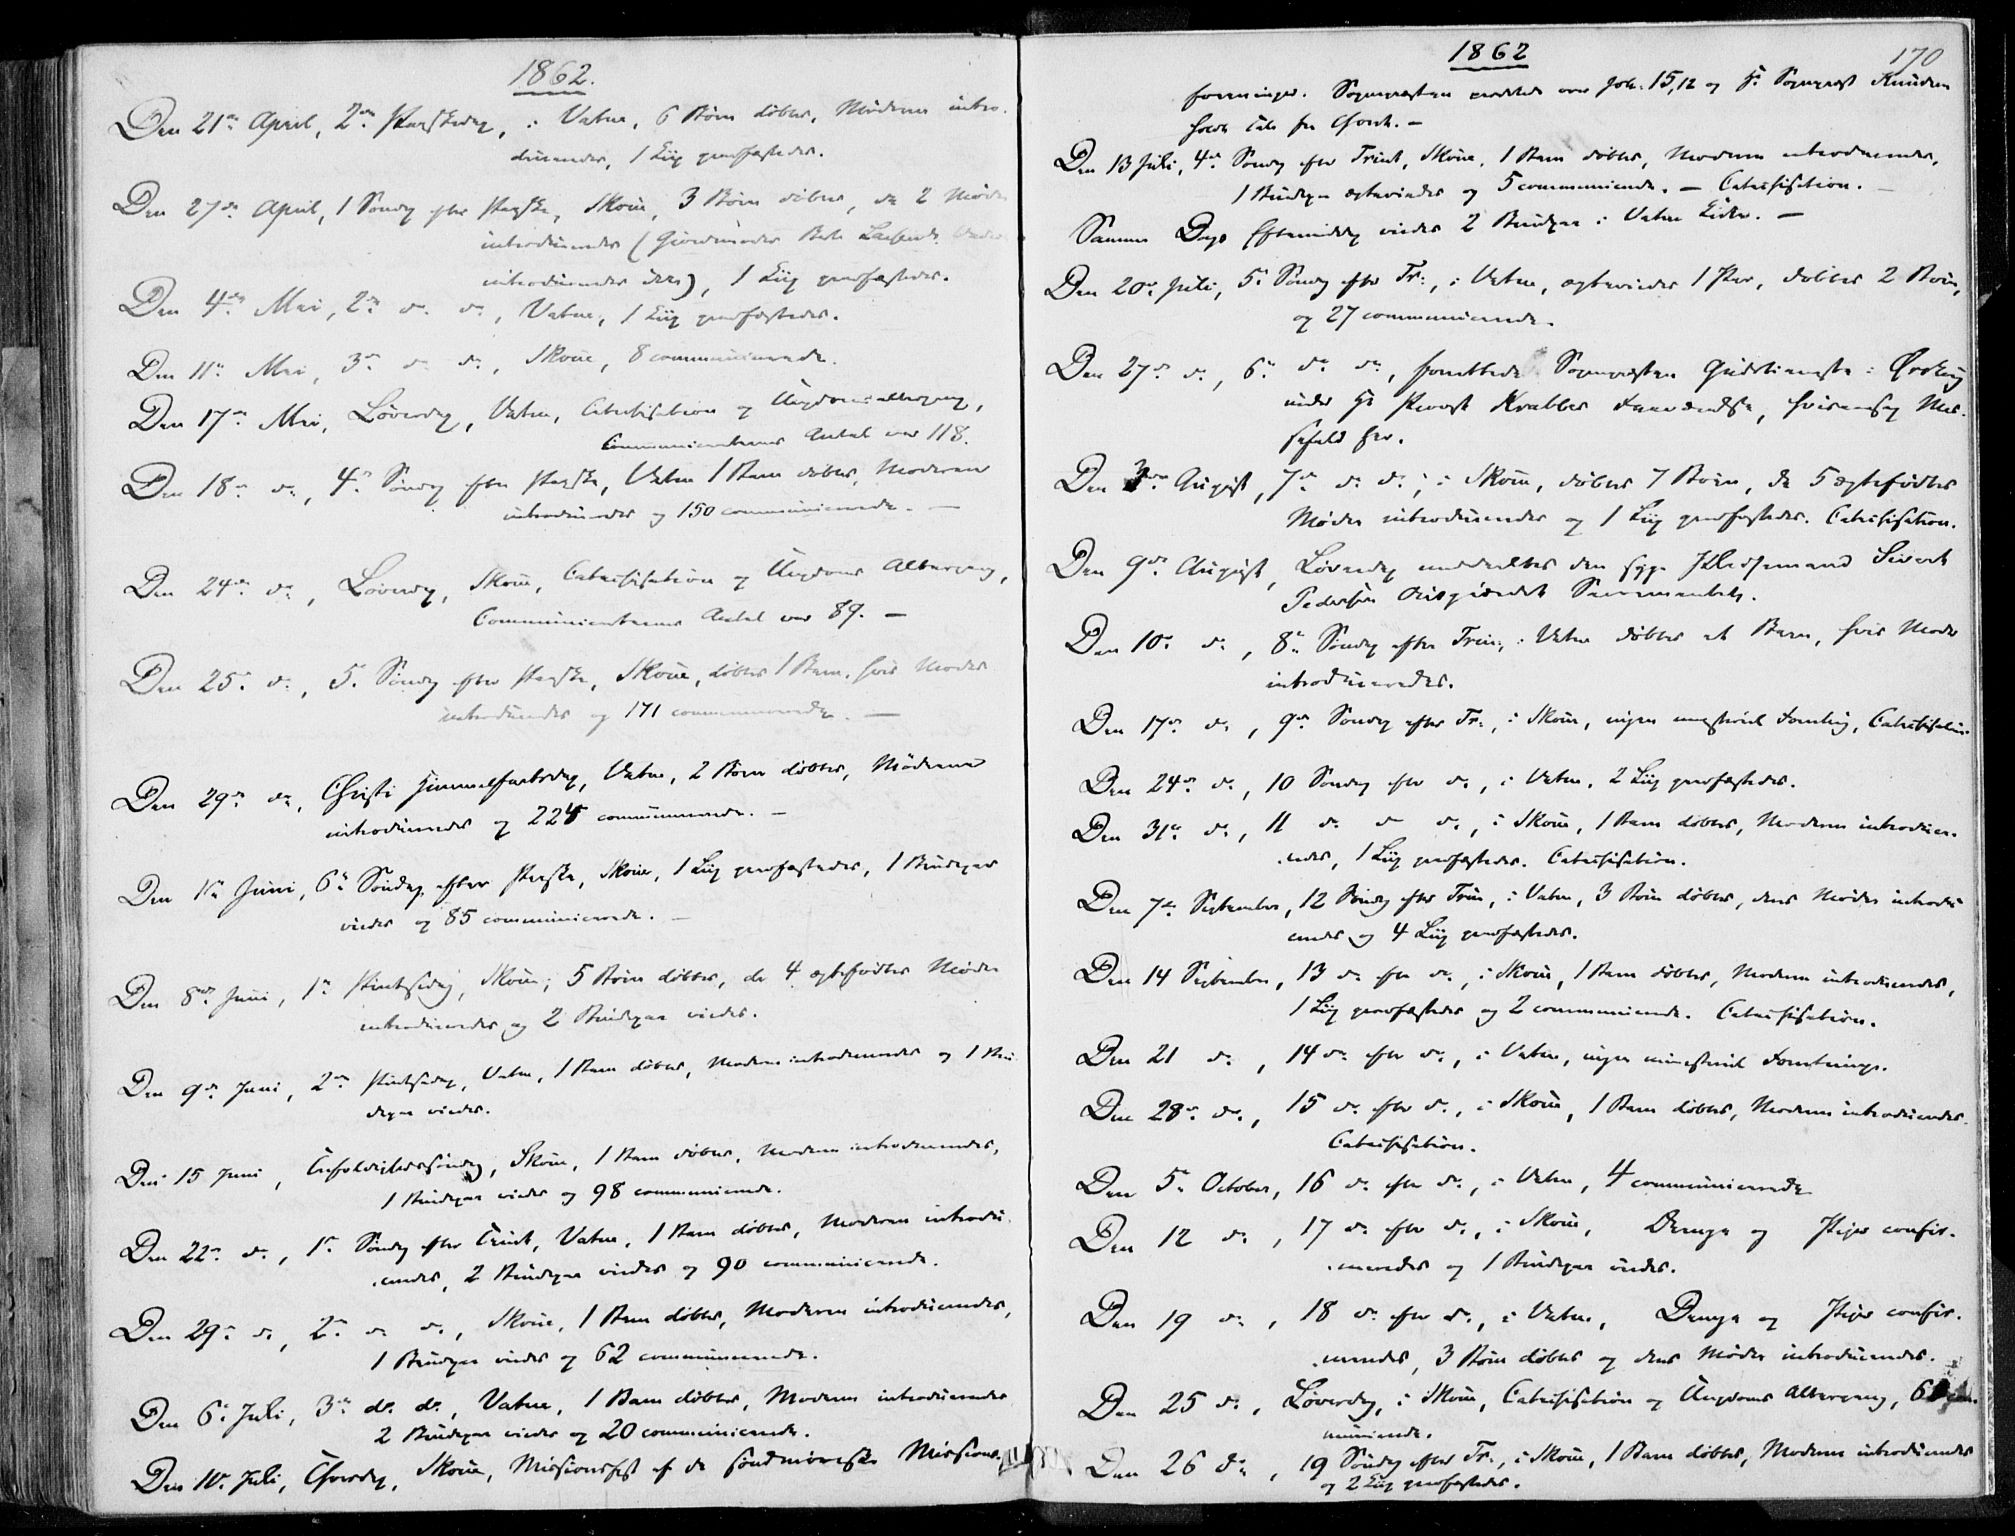 1862.
Den 21de April, 2den Paaskedag, i Vatne, 6 Børn døbtes, Mødrene intro-
duceredes, 1 Liig jordfæstedes.
Den 27de April, 1 Søndag efter Paaske, Skoue, 3 Børn døbtes, de 2 Mødre
introduceredes (
introduceredes ikke), 1 Liig jordfæstedes.
Den 4de Mai, 2den do. do., Vatne, 1 Liig jordfæstedes.
Den 11te Mai, 3die do. do., Skoue, 8 communicerede.
Den 17de Mai, Løverdag, Vatne, Catechisation og Ungdoms altergang,
Communicanternes Antal var 118.
Den 18de do., 4de Søndag efter Paaske, Vatne 1 Barn døbtes, Moderen
introduceredes og 150 communicerede. —
Den 24de do., Løverdag, Skoue, Catechisation og Ungdoms Altergang,
Communicanternes Antal var 89. —
Den 25de do., 5. Søndag efter Paaske, Skoue, døbtes 1 Barn, hvis Moder
introduceredes og 171 communicerede. —
Den 29de do., Christi Himmelfartsdag, Vatne, 2 Børn døbtes, Mødrene
introduceredes og 224 communicerede. —
Den 1ste Juni, 6te Søndag efter Paaske, Skoue, 1 Liig jordfæstedes, 1 Brudepar
viedes og 85 communicerede. —
Den 8de Juni, 1ste Pintsedag, Skoue, 5 Børn døbtes, de 4 ægtefødtes Mødre
introduceredes og 2 Brudepar viedes.
Den 9de Juni, 2den Pintsedag, Vatne, 1 Barn døbtes, Moderen introduceredes og 1 Bru-
depar viedes.
Den 15 Juni, Trefoldighedssøndag, Skoue, 1 Barn døbtes, Moderen introduceredes,
1 Brudepar viedes og 98 communicerede.
Den 22de do., 1ste Søndag efter Trinit., Vatne, 1 Barn døbtes, Moderen introdu-
ceredes, 2 Brudepar viedes og 90 communicerede.
Den 29de do., 2den do. do., Skoue, 1 Barn døbtes, Moderen introduceredes,
1 Brudepar viedes og 62 communicerede.
Den 6te Juli, 3die do. do., Vatne, 1 Barn døbtes, Moderen introduceredes
2 Brudepar viedes og 20 communicerede.
Den 10de Juli, Thorsdag, Skoue, Missionsfest af de søndmørske Missions-
1862
170
foreninger. Sognepræsten prædikede over Joh. 15,12 og Hr Sogneprest Knudsen
holdt Tale fra Choret. —
Den 13 Juli, 4de Søndag efter Trinit., Skoue, 1 Barn døbtes, Moderen introduceredes,
1 Brudepar ægteviedes og 5 communicerede. — Catechisation. —
Samme Dags Eftermiddag viedes 2 Brudepar i Vatne Kirke. —
Den 20de Juli, 5te Søndag efter Tr:, i Vatne, ægteviedes 1 Par, døbtes 2 Børn,
og 27 communicerede.
Den 27de do., 6te do. do., forrettede Sognepræsten Gudstjeneste i Ørskoug
under Hr Provst Krabbes Fraværelse, hvisaarsag Mes-
sefald her.
Den 3die August, 7de do. do., i Skoue, døbtes 7 Børn, de 5 ægtefødtes
Mødre introduceredes og 1 Liig jordfæstedes. Catechisation.
Den 9de August, Løverdag meddeeltes den syge Sivert
Pedersen Sacramentet.
Den 10de do., 8de Søndag efter Trin., i Vatne døbtes et Barn, hvis Moder
introduceredes.
Den 17de do., 9de Søndag efter Tr., i Skoue, ingen ministeriel Forretning, Catechisation.
Den 24de do., 10 Søndag efter do., i Vatne, 2 Liig jordfæstedes.
Den 31te do., 11 do. do. do., i Skoue, 1 Barn døbtes, Moderen introduce-
redes, 1 Liig jordfæstedes. Catechisation.
Den 7de September, 12 Søndag efter Trin., i Vatne, 3 Børn døbtes, deres Mødre introdu-
ceredes og 4 Liig jordfæstedes.
Den 14 September, 13 do. efter do., i Skoue, 1 Barn døbtes, Moderen introduceredes,
1 Liig jordfæstedes og 2 communicerede. Catechisation.
Den 21 do., 14 do. efter do., i Vatne, ingen ministeriel Forretning.
Den 28de do., 15 do. efter do., i Skoue, 1 Barn døbtes, Moderen introduceredes.
Catechisation.
Den 5te October, 16 do. efter do., i Vatne, 4 communicerede
Den 12 do., 17 do. efter do., i Skoue, Drenge og Piger confir-
meredes og 1 Brudepar viedes.
Den 19 do., 18 do. efter do., i Vatne, Drenge og Piger confir-
meredes, 3 Børn døbtes og deres Mødre introduceredes.
Den 25 do., Løverdag, i Skoue, Catechisation og Ungdoms Altergang,
municerede.
Den 26 do., 19 Søndag efter Tr., i Skoue, 1 Barn døbtes, Moderen introduceredes
og 2 Liig jordfæstedes.